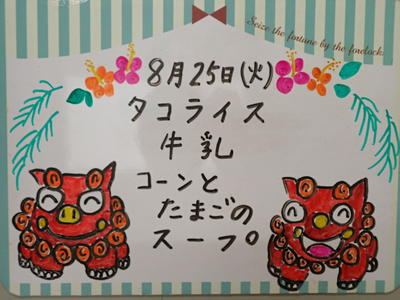 Seize the fontane by the forelock.
8月25日(火)
タコライス
牛乳
コーンと
たまごの
スープ